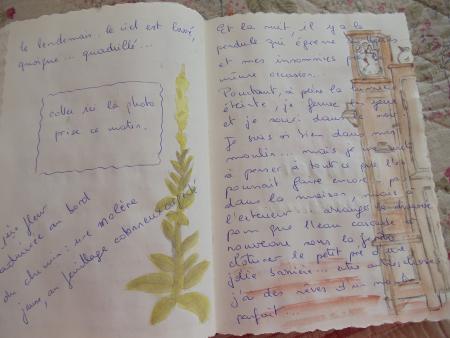 le lendemain, le ciel est lissé,
quoique... quadrillé...
coller ici la photo
prise ce matin.
jolie fleur
admirée au bord
du chemin : une molène
jaune, au feuillage cotonneux
Et la nuit, il y a la
pendule qui égrène
et mes insomnies
même occasion...
Pourtant, à peine la lumière
éteinte, je ferme les yeux
et je souris dans le noir.
Je suis si bien dans mon
moulin... mais je
à penser à tout ce que l'on
pourrait faire encore
dans la maison, mais à
l'extérieur : arranger la chaussée
pour que l'eau cascade à
nouveau sous la fenêtre
clôturer le petit pré d'une
jolie barrière... entre autres choses
j'ai des rêves d'un monde
parfait...